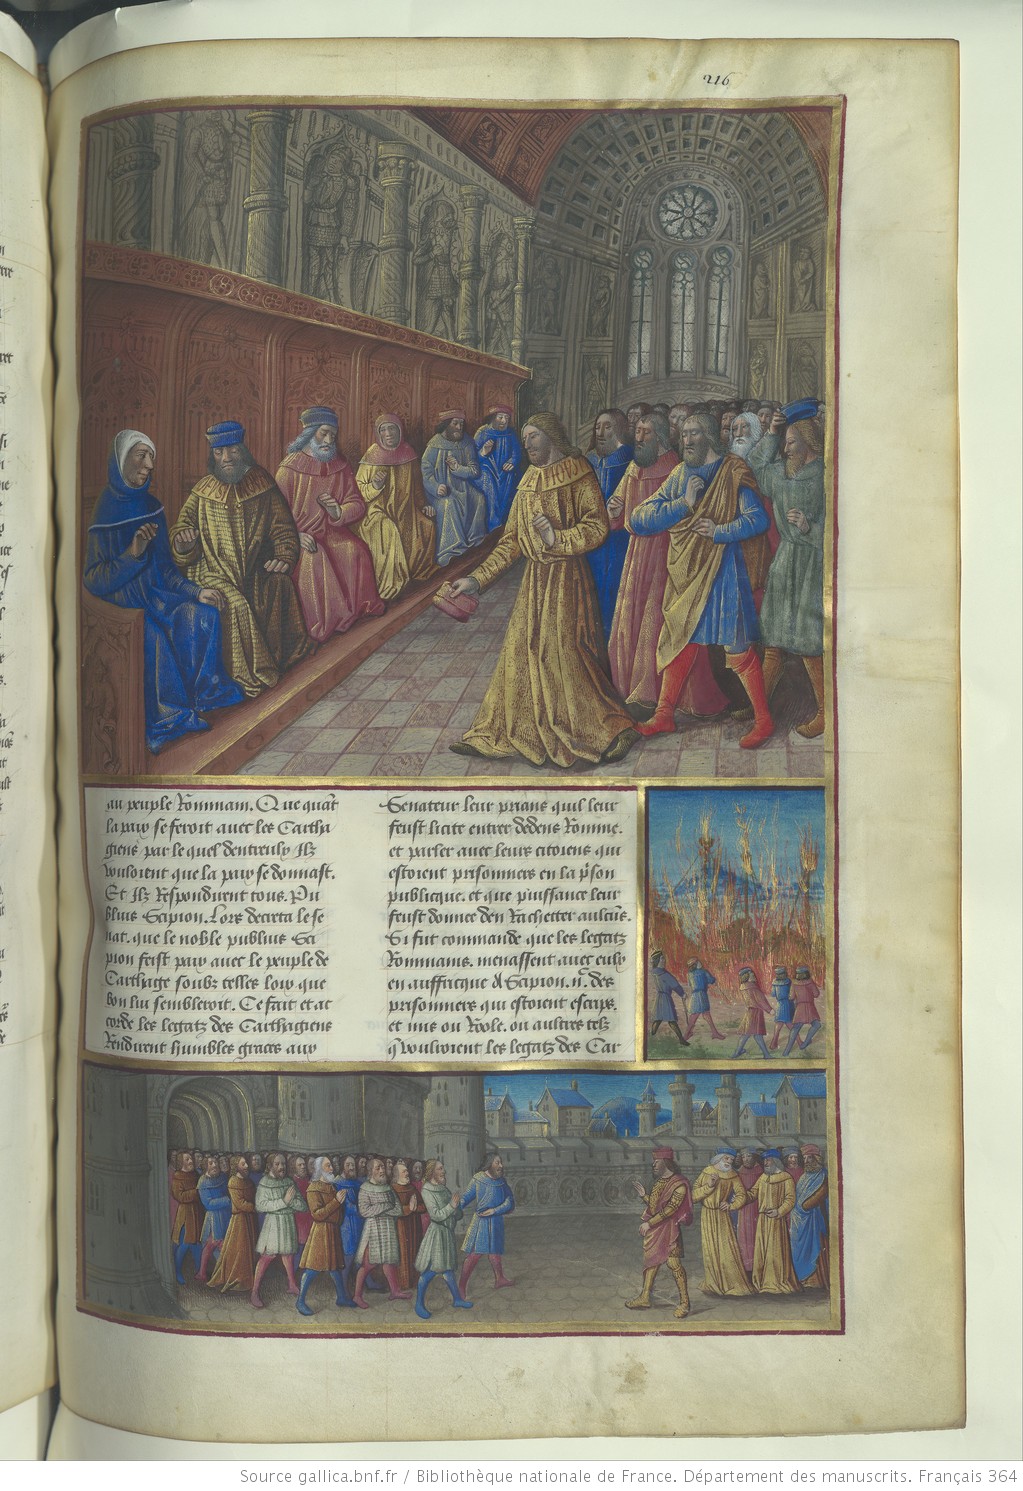 216
au peuple Rommain. Que quāt
la paix se feroit auec les Cartha
giens par le quel dentreulx Ilz
vouloient que la paix se donnast.
Et Ilz Respondirent tous. Pu
blius Scipion. Lors decreta le se
nat. que le noble publius Sci
pion feist paix auec le peuple de
Carthage soubz telles loix que
bon lui sembleroit. Ce fait et ac
corde les legatz des Carthagiens
Rendirent humbles graces aux
Senateur leur prians quil leur
feust licite entrer dedens Romme.
et parler auec leurs citoiens qui
estoient prisonniers en la p̄son
publicque. et que puissance leur
feust donnee den Rachetter aulcūs.
Si fut commande que les legatz
Rommains. menassent auec eulx
en auffricque A Scipion. des
prisonniers qui estoient escrips.
et mis ou Roole. ou aultres telz
q̄ vouldroient les legatz des Car
Source gallica.bnf.fr / Bibliothèque nationale de France. Département des manuscrits. Français 364